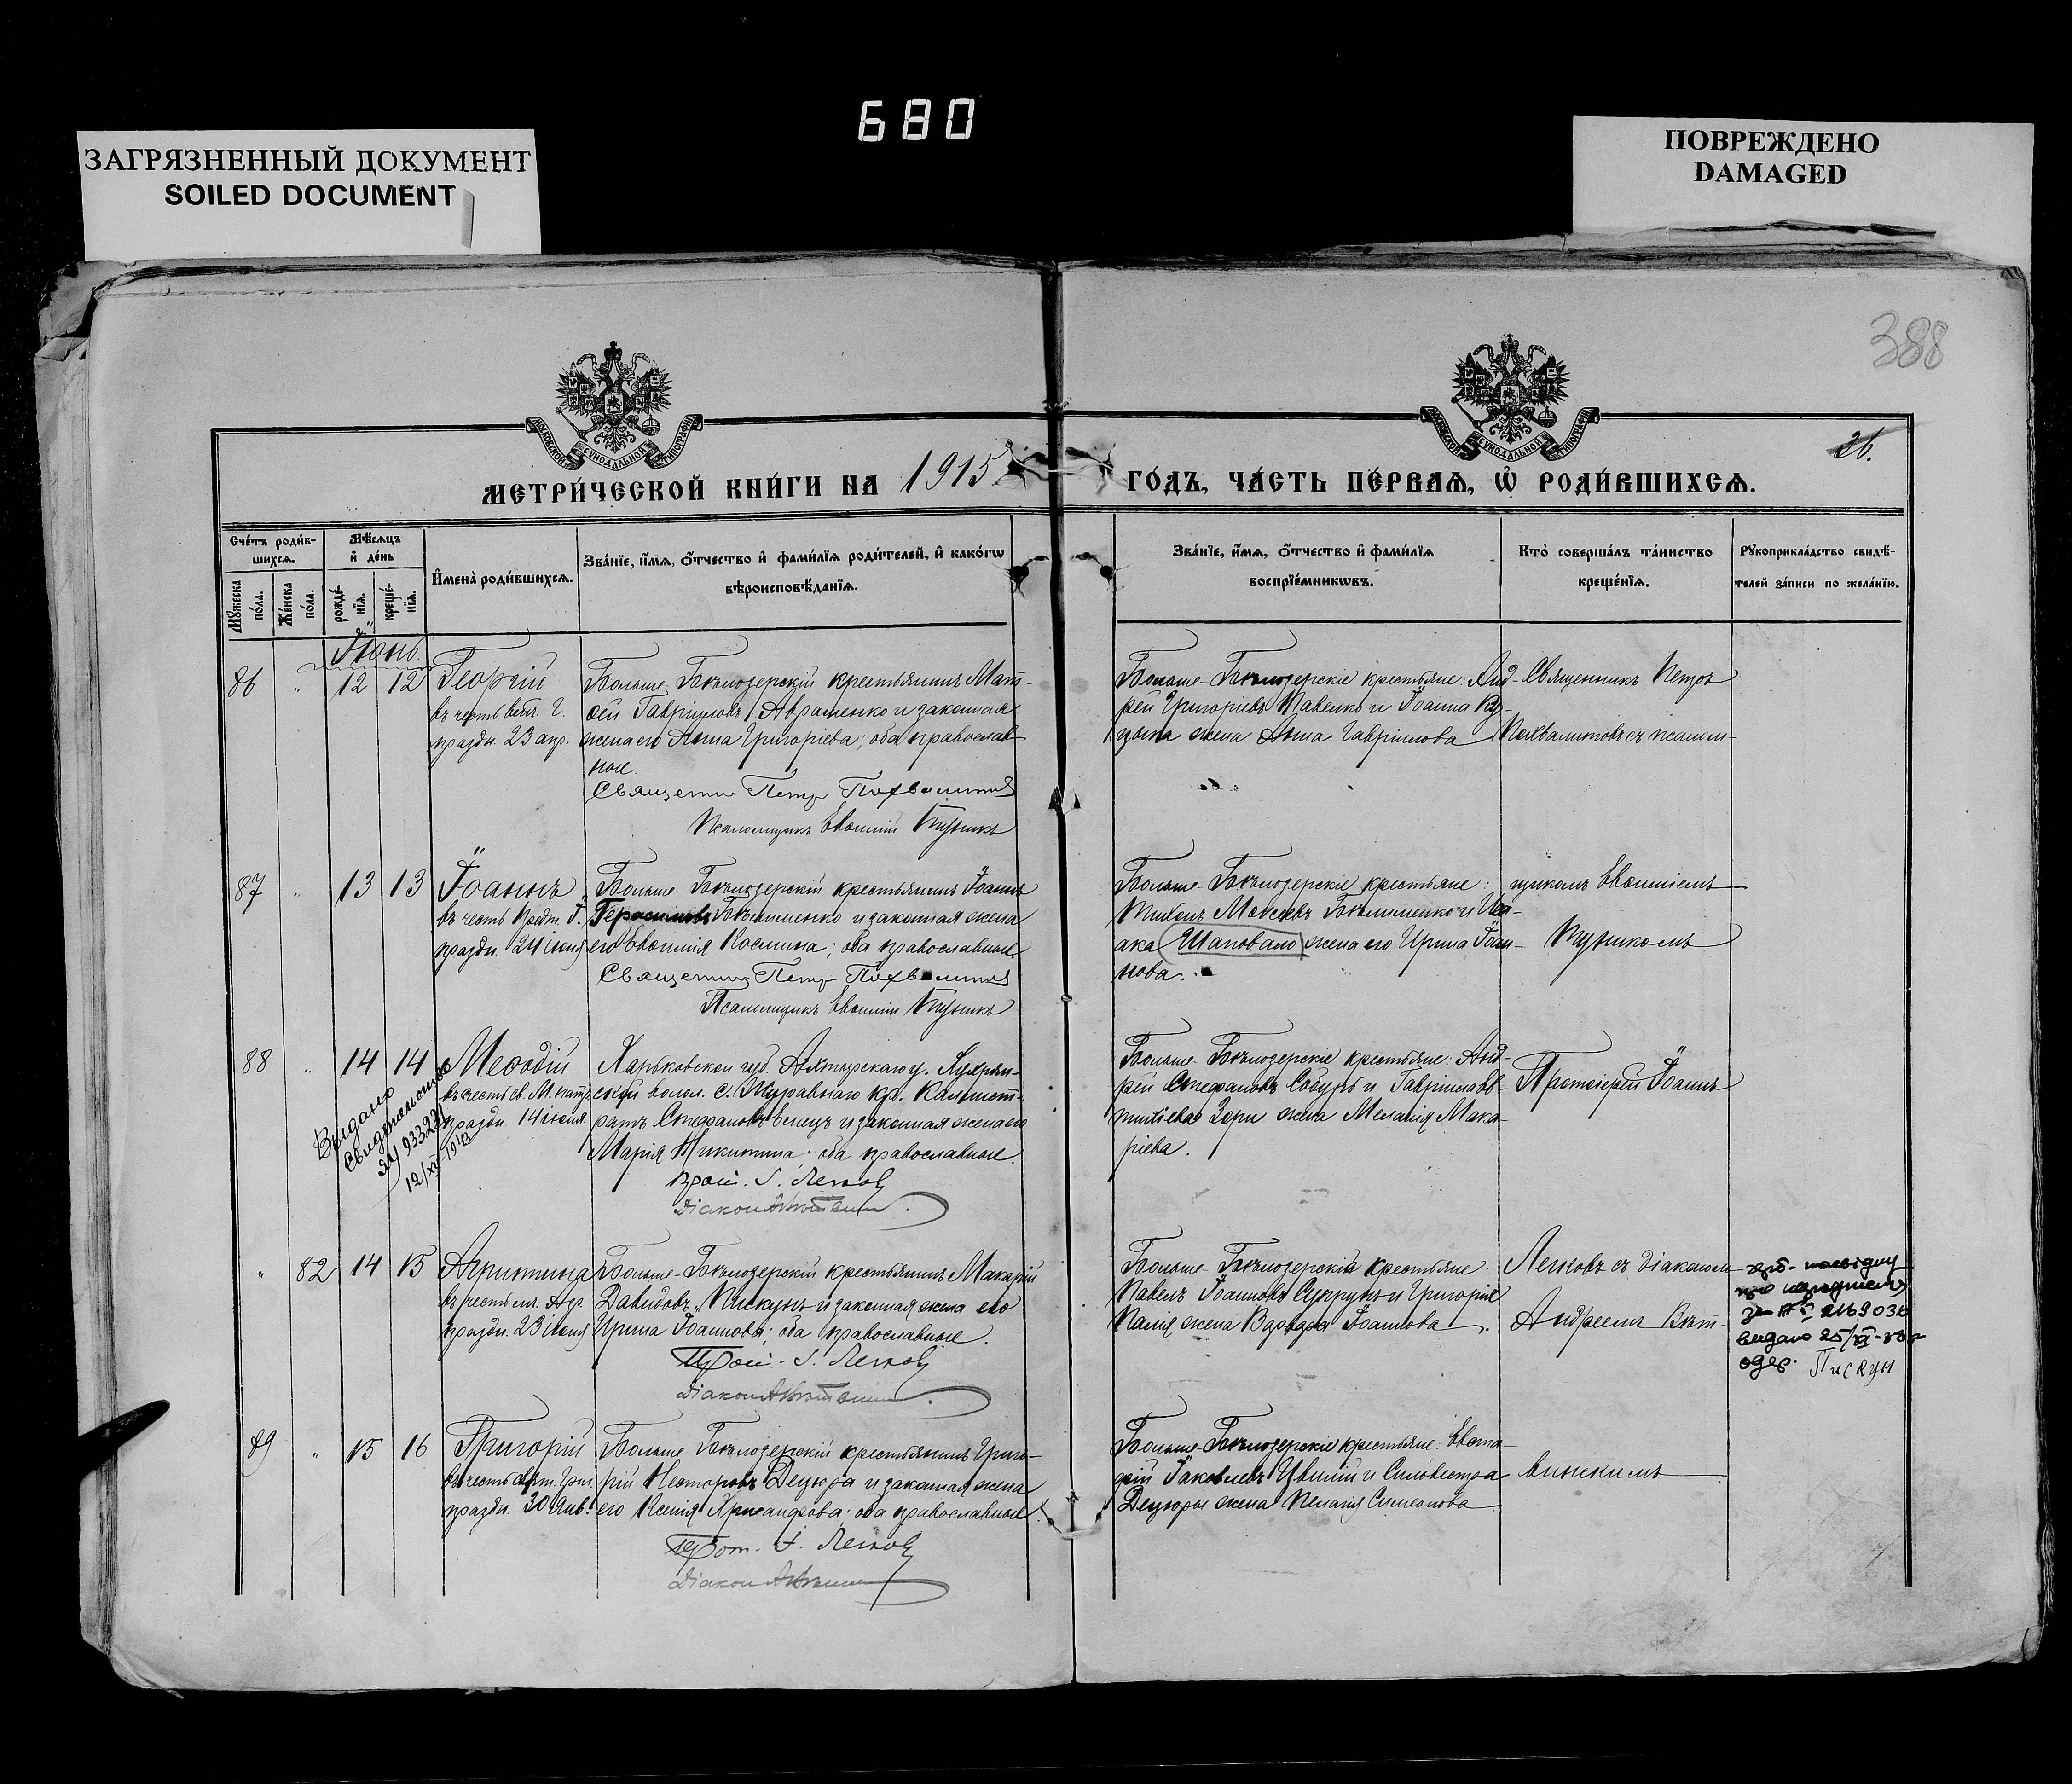 680
ЗАГРЯЗНЕННЫЙ ДОКУМЕНТ
SOILED DOCUMENT
ПОВРЕЖДЕНО
DAMAGED
388
26.
МОСКОВСКОЙ СУНОДАЛЬНОЙ ТИПОГРАФІИ
МОСКОВСКОЙ СУНОДАЛЬНОЙ ТИПОГРАФІИ
МЕТРИ́ЧЕСКОЙ КНИ́ГИ НА 1915
ГО́ДЪ, ЧА́СТЬ ПЕ́РВАѦ, Ѡ҆ РОДИ́ВШИХСѦ.
Сче́тъ роди́в-
шихсѧ.
Мꙋ́жеска по́ла.
Же́нска по́ла.
Мѣ́сѧцъ
и҆ де́нь
рожде́-
нїѧ.
креще́-
нїѧ.
И҆мена̀ роди́вшихсѧ.
Зва́нїе, и҆́мѧ, ѻ҆́тчество и҆ фами́лїѧ роди́телей, и҆ како́гѡ
вѣроисповѣ́данїѧ.
Зва́нїе, и҆́мѧ, ѻ҆́тчество и҆ фами́лїѧ
воспрїе́мникѡвъ.
Кто̀ соверша́лъ та́инство
креще́нїѧ.
Рꙋкоприкла́дство свидѣ́-
телей за́писи по жела́нїю.
Іюнь
86 " 12 12 Георгій
въ честь велм. Г.
праздн. 23 апр.
Больше-Бѣлозерскій крестьянинъ Мат-
ѳей Гавріиловъ Авраменко и законная
жена его Анна Григоріева; оба православ-
ные.
Священник Петр Похвалитов
Псаломщикъ Евѳимій Пузикъ
Больше-Бѣлозерскіе крестьяне: Анд-
рей Григоріевъ Павелко и Іоанна
жена Анна Гавріилова
Священникъ Петръ
Похвалитовъ съ псалом-
87 " 13 13 Іоаннъ
въ честь Предт. І.
праздн. 24 іюня
Больше-Бѣлозерскій крестьянинъ Іоаннъ
Герасимовъ и законная жена
его Евѳимія Космина; оба православные.
Священник Петр Похвалитов
Псаломщикъ Евѳимій Пузикъ
Больше-Бѣлозерскіе крестьяне:
Тихонъ Моисеевъ и Иса-
ака Шаповало жена его Ирина Іоан-
нова.
щикомъ Евѳиміемъ
Пузикомъ
88 " 14 14 Меѳодій
въ честь св. М. патр.
праздн. 14 іюня
Видано
Свидетельство
933221
12/XI-1943
Харьковской губ. Ахтырскаго у.
волос. с. Журавнаго кр. Калист-
ратъ Стефановъ и законная жена его
Марія Никитина; оба православные.
Прот. І. Легковъ
Діакон
Больше-Бѣлозерскіе крестьяне: Анд-
рей Стефановъ и Гавріила
Зори жена Меланія Мака-
ріева.
Протоіерей Іоаннъ
" 82 14 15 Агрипина
въ честь мч. Агр.
праздн. 23 іюня
Больше-Бѣлозерскій крестьянинъ Макарій
Давидовъ Пискунъ и законная жена его
Ирина Іоаннова; оба православные.
Прот. І. Легковъ
Діакон
Больше-Бѣлозерскіе крестьяне:
Павелъ Іоанновъ Супрунъ и Григорія
Палія жена Варвара Іоаннова.
Легковъ съ діакономъ
Андреемъ Вѣт-
про народження
видано 25/XI
одер. Пискун
89 " 15 16 Григорій
въ честь свят. Григ.
праздн. 30 янв.
Больше-Бѣлозерскій крестьянинъ Григо-
рій Несторовъ Децюра и законная жена
его Ксенія Хрисанфова; оба православные.
Прот. І. Легковъ
Діакон
Больше-Бѣлозерскіе крестьяне: Евста-
фій Іаковлевъ и Сильвестра
Децюры жена Пелагія Симеонова
винскимъ